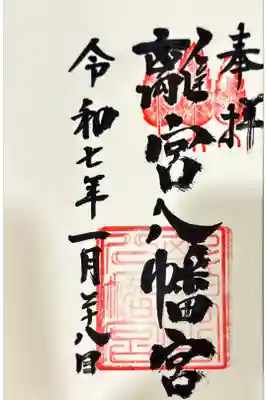 奉拝
離宮八幡宮
令和七年一月廿八日